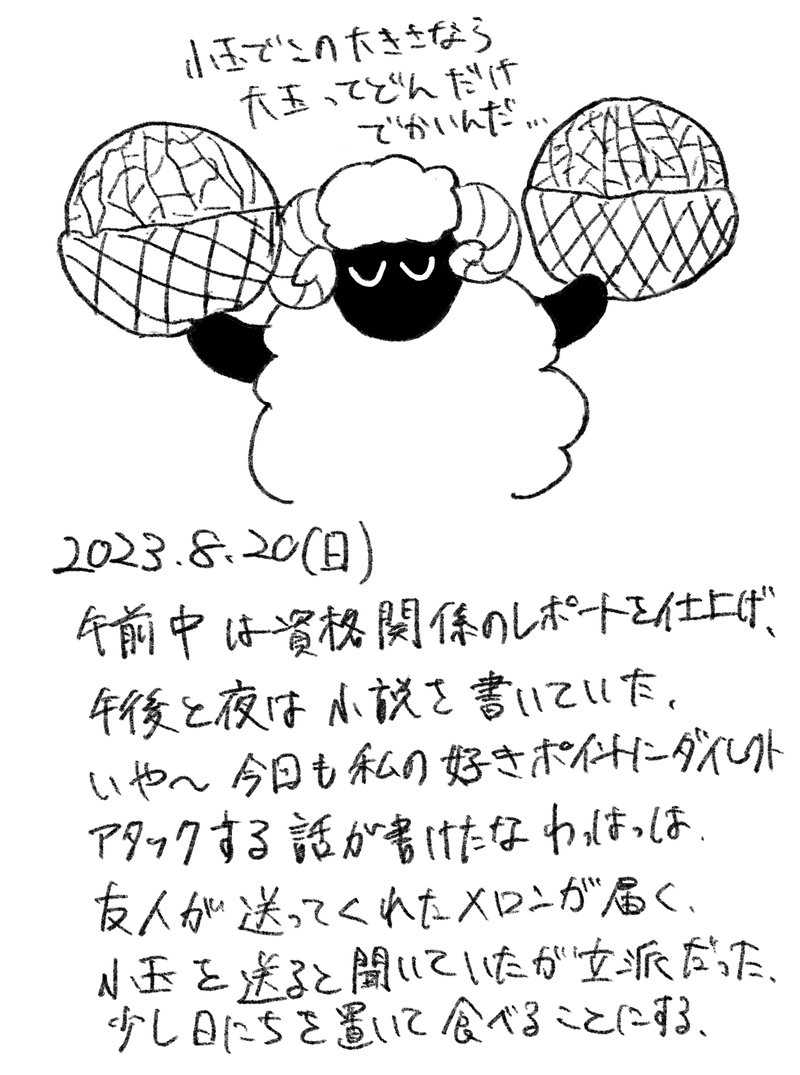 小玉でこの大きさなら
大玉ってどんだけ
でかいんだ…
2023.8.20(日)
午前中は資格関係のレポートを仕上げ、
午後と夜は小説を書いていた。
いや〜今日も私の好きポイントにダイレクト
アタックする話が書けたなわっはっは.
友人が送ってくれたメロンが届く.
小玉を送ると聞いていたが立派だった.
少し日にちを置いて食べることにする.